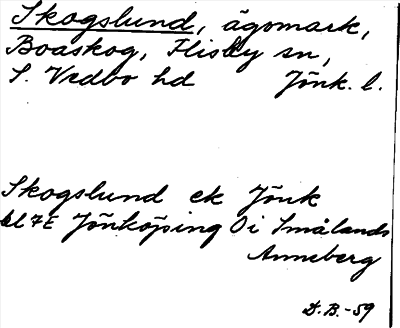 Skogslund, ägomark,
Boaskog, Flisby sn,
S. Vedbo hd Jönk. l.
Skogslund ek Jönk
bl 7E Jönköping Ö i Smålands
Anneberg
D.B.-59